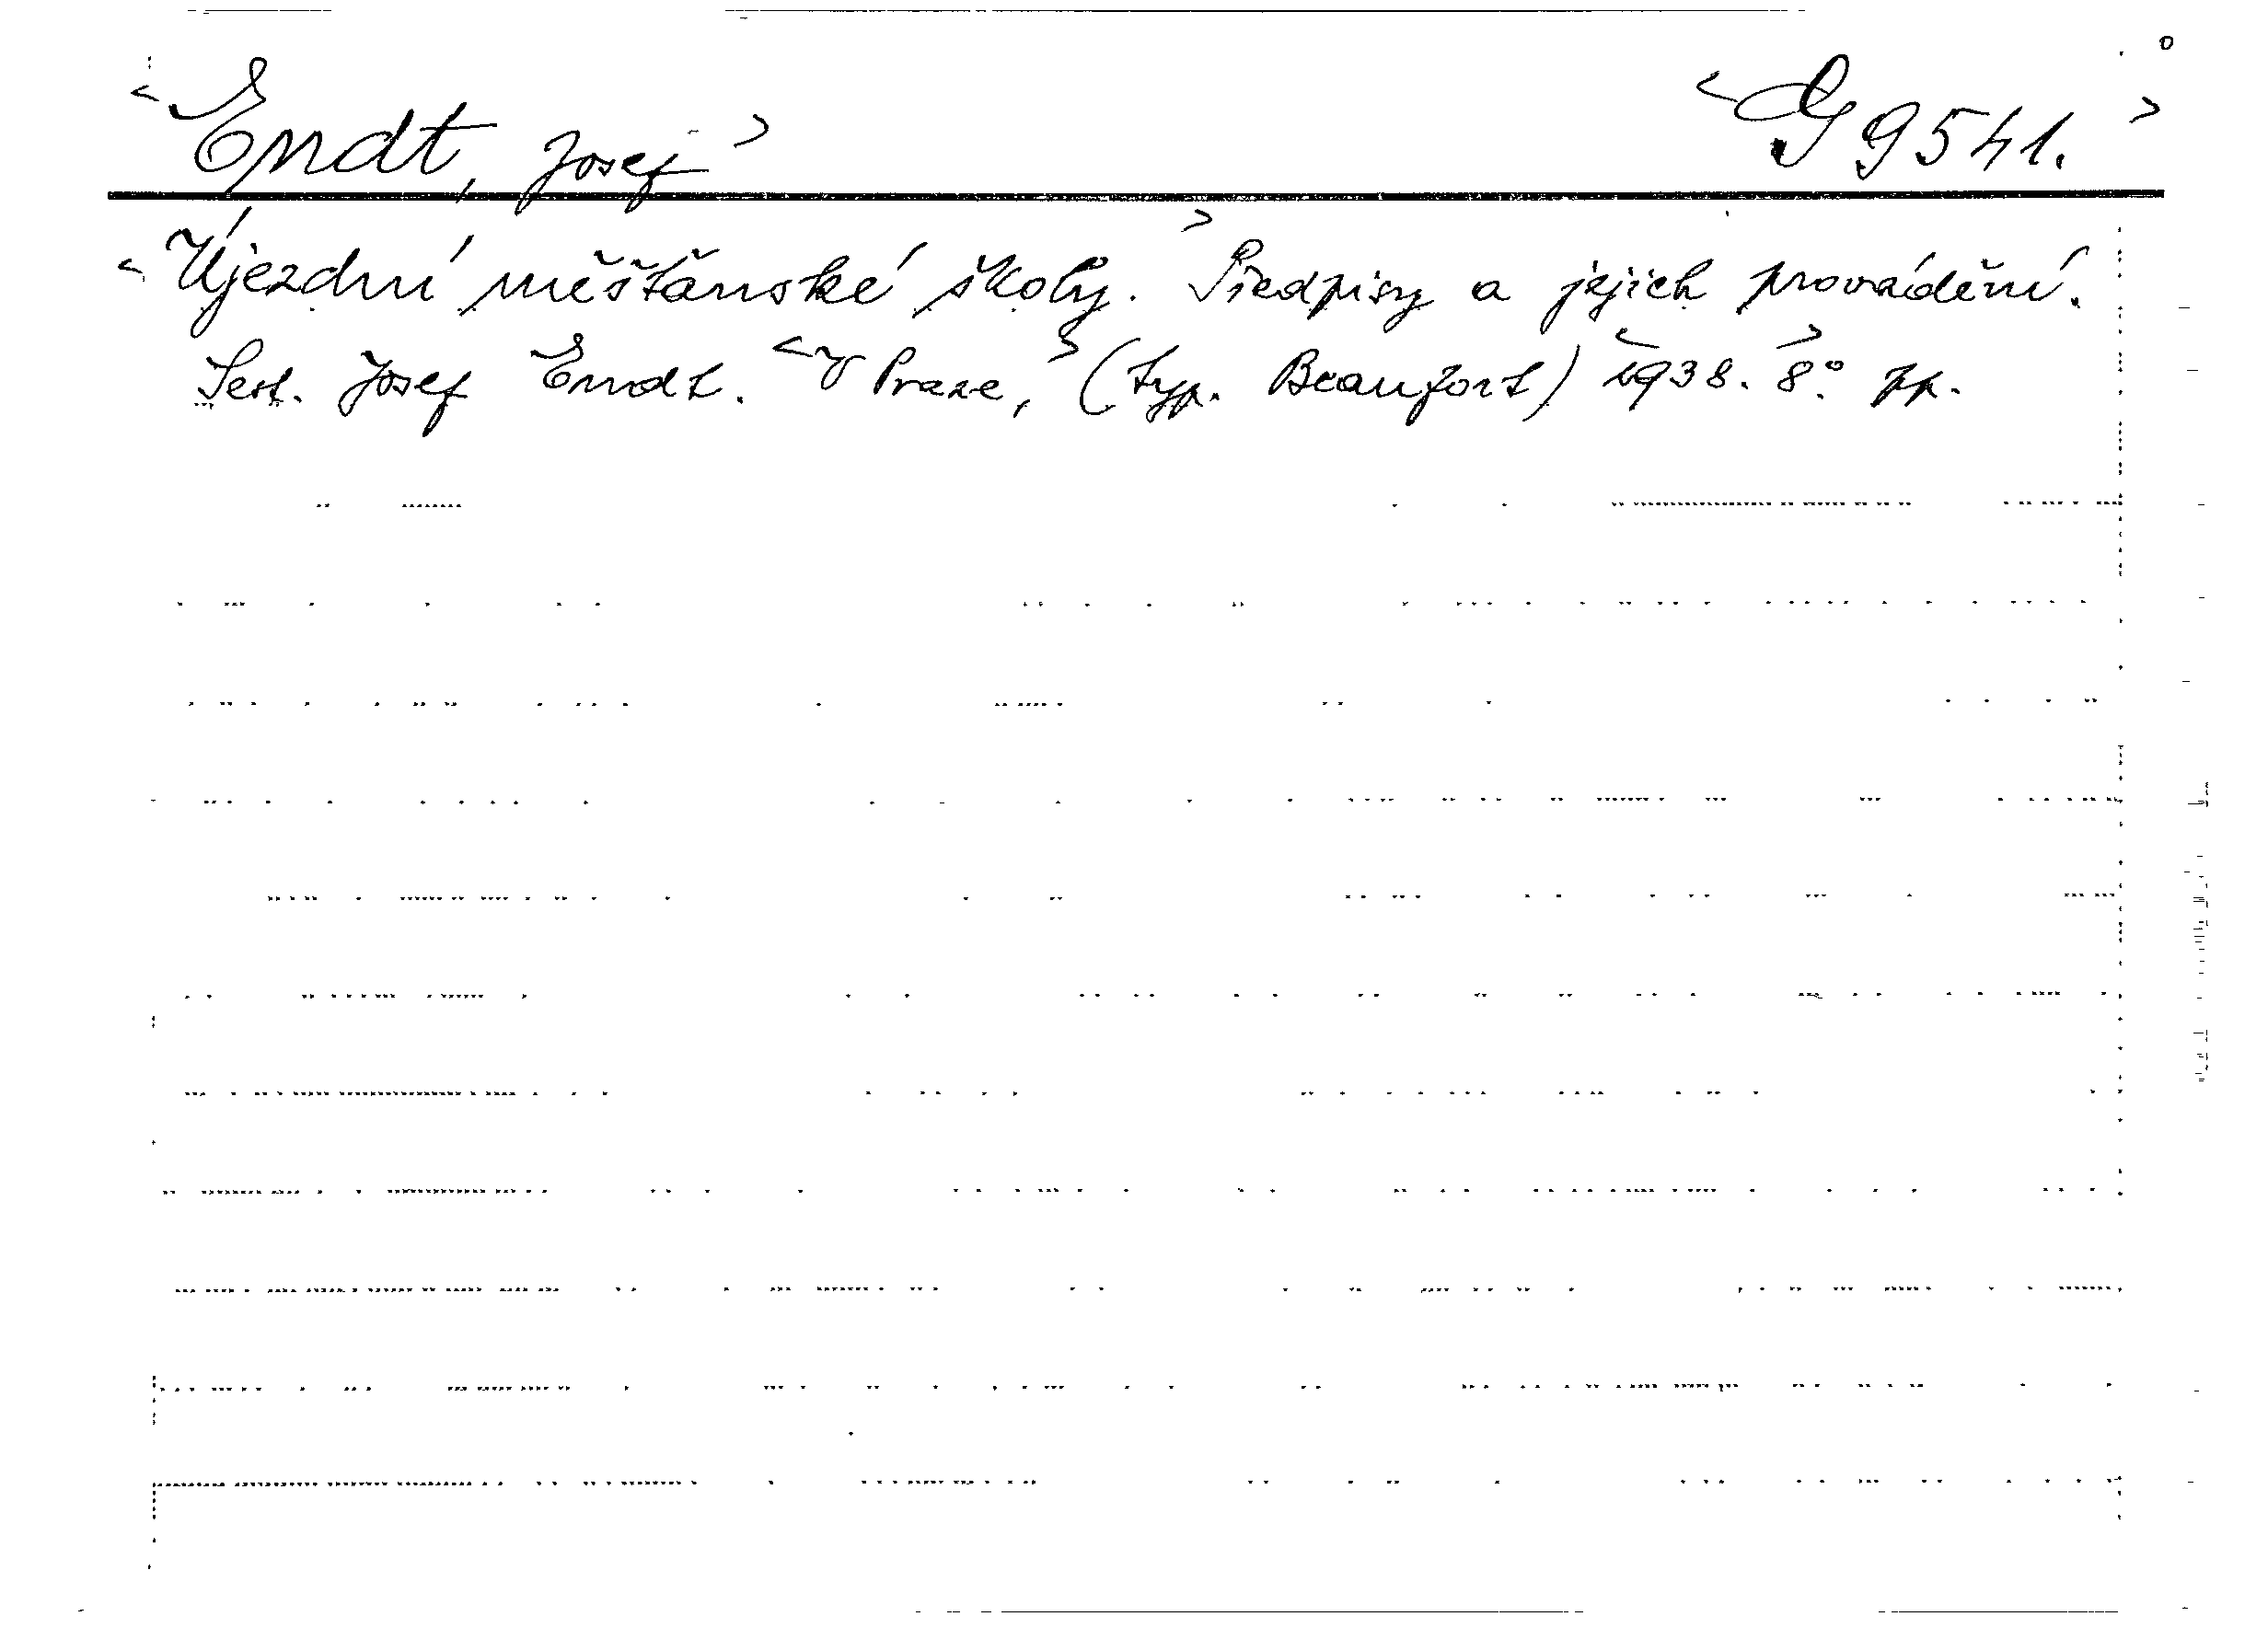 <Endt, Josef> <G 9541.>
<Újezdní měšťanské školy.> Předpisy a jejich provádění.
Sest. Josef Endt. <V Praze,> (typ. Beaufort) <1938.> 8° pp.